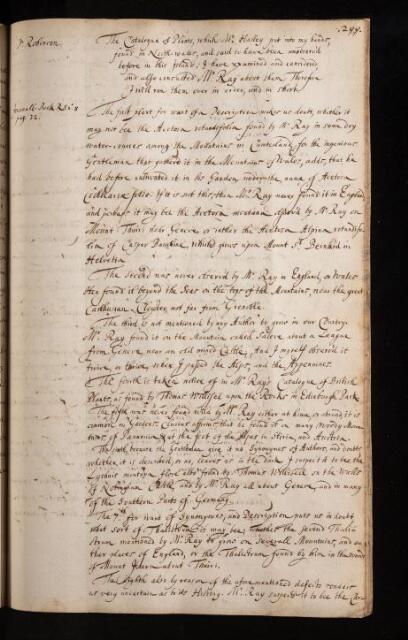 299.
Dr. Robinson.
The Catalogue of Plants, which Mr. Halley put into my hands,
found in North-wales, and said to have been unobserved
before in this Island; I have examined and considered
and also consulted Mr. Ray about them. Therefore
I will run them over in order, and in short.
pag. 22.
The first plant for want of a Description makes us doubt, whether it
may not be the Acetosa rotundifolia found by Mr. Ray in some dry
water-courses among the Mountains in Cumberland, for the ingenious
Gentleman that gathered it in the Mountains of Wales, adds, that he
had before cultivated it in his Garden under the name of Acetosa
If it is not this, then Mr. Ray never found it in England
and perhaps it may be the Acetosa montana observ'd by Mr. Ray on
Mount Thuiri near Geneva, or rather the Acetosa Alpina rotundifo-
lia of Casper Bauhine, which grows upon Mount St. Bernard in
Helvetia.
The Second was never observed by Mr. Ray in England, or Wales
Hee found it beyond the Seas on the top of the Mountains, near the great
Carthusian Cloyster not far from Grenoble.
The third is not mentioned by any Author to grow in our Country.
Mr. Ray found it on the Mountain called Saleve about a League
from Geneva near an old ruined Castle, And I myself observed it
twice, or thrice, when I passed the Alps, and the Appennines.
The fourth is taken notice of in Mr. Ray's Catalogue of British
Plants, as found by Thomas Willisel upon the Rocks in Edinburgh Park
The fifth was never found wild by Mr. Ray either at home, or abroad, it is
common in Gardens. Clusius affirms that he found it on many Woody Moun-
tains of Pannonia, & at the foot of the Alps in Stiria, and Austria.
The sixth, because the Gentleman gives it no Synonymes of Authors, and doubts
whether it is described or no, leaves us in the dark. I suspect it to be the
Lychnis sylvestris found by Thomas Willisell on the Walls
of Nottingham Castle, and by Mr. Ray all about Geneva, and in many
of the Southern Parts of Germany.
The 7th for want of Synonymes, and Description puts us in doubt
what sort of Thalictrum it may be, whether the second Thalic-
trum mentioned by Mr. Ray to grow on Severall Mountains, and on
other places of England, or the Thalictrum found by him in the woods
of Mount Jura about Thuiri.
The Eighth also by reason of the aforementioned defects renders
us very uncertain as to its History. Mr. Ray suspects it to be the